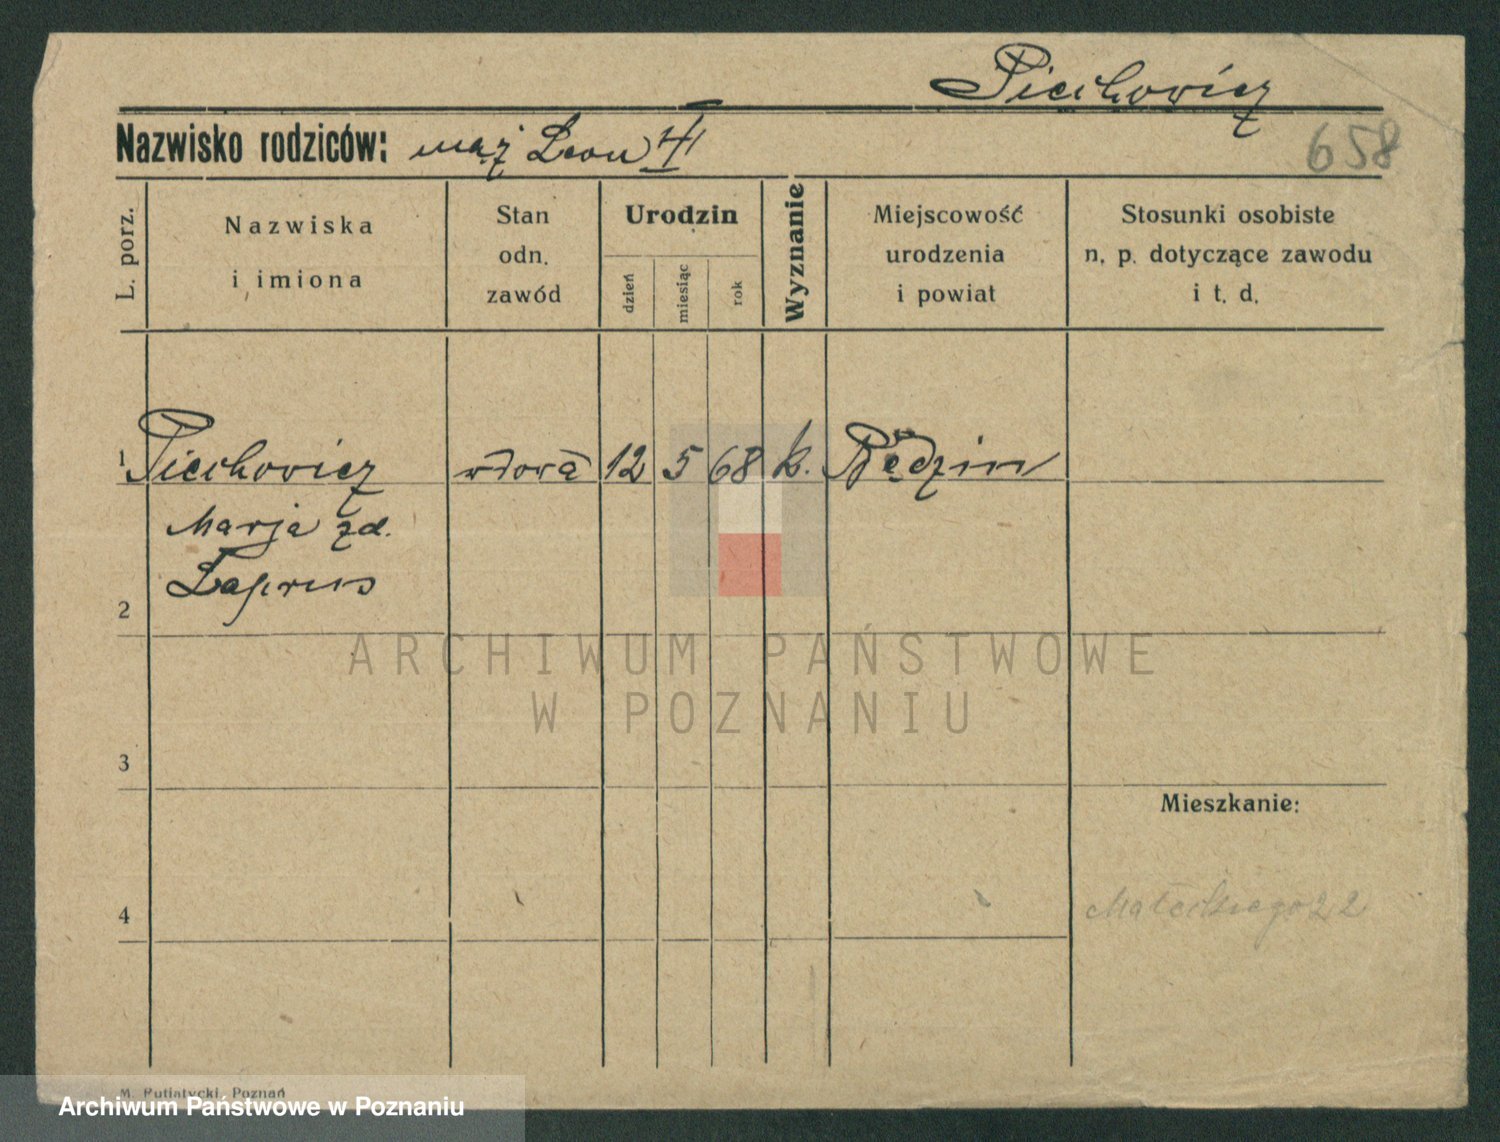 Piechowicz
Nazwisko rodziców: mąż Leon
658
L. porz.
Nazwiska
i imiona
Stan
odn.
zawód
Urodzin
dzień
miesiąc
rok
Wyznanie
Miejscowość
urodzenia
i powiat
Stosunki osobiste
n. p. dotyczące zawodu
i t. d.
1 Piechowicz wdowa 12 5 68 k. Będzin
Marja zd.
2
ARCHIWUM PAŃSTWOWE
W POZNANIU
3
Mieszkanie:
4
Małeckiego 22
M. Putiatycki, Poznań
Archiwum Państwowe w Poznaniu